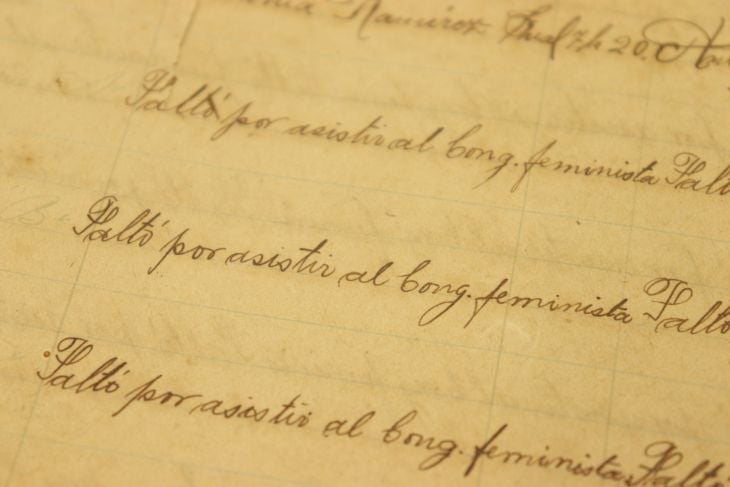 Ramirez 20.
Faltó por asistir al Cong. feminista Falt
Faltó por asistir al Cong. feminista Falto
Faltó por asistir al Cong. feminista Falto